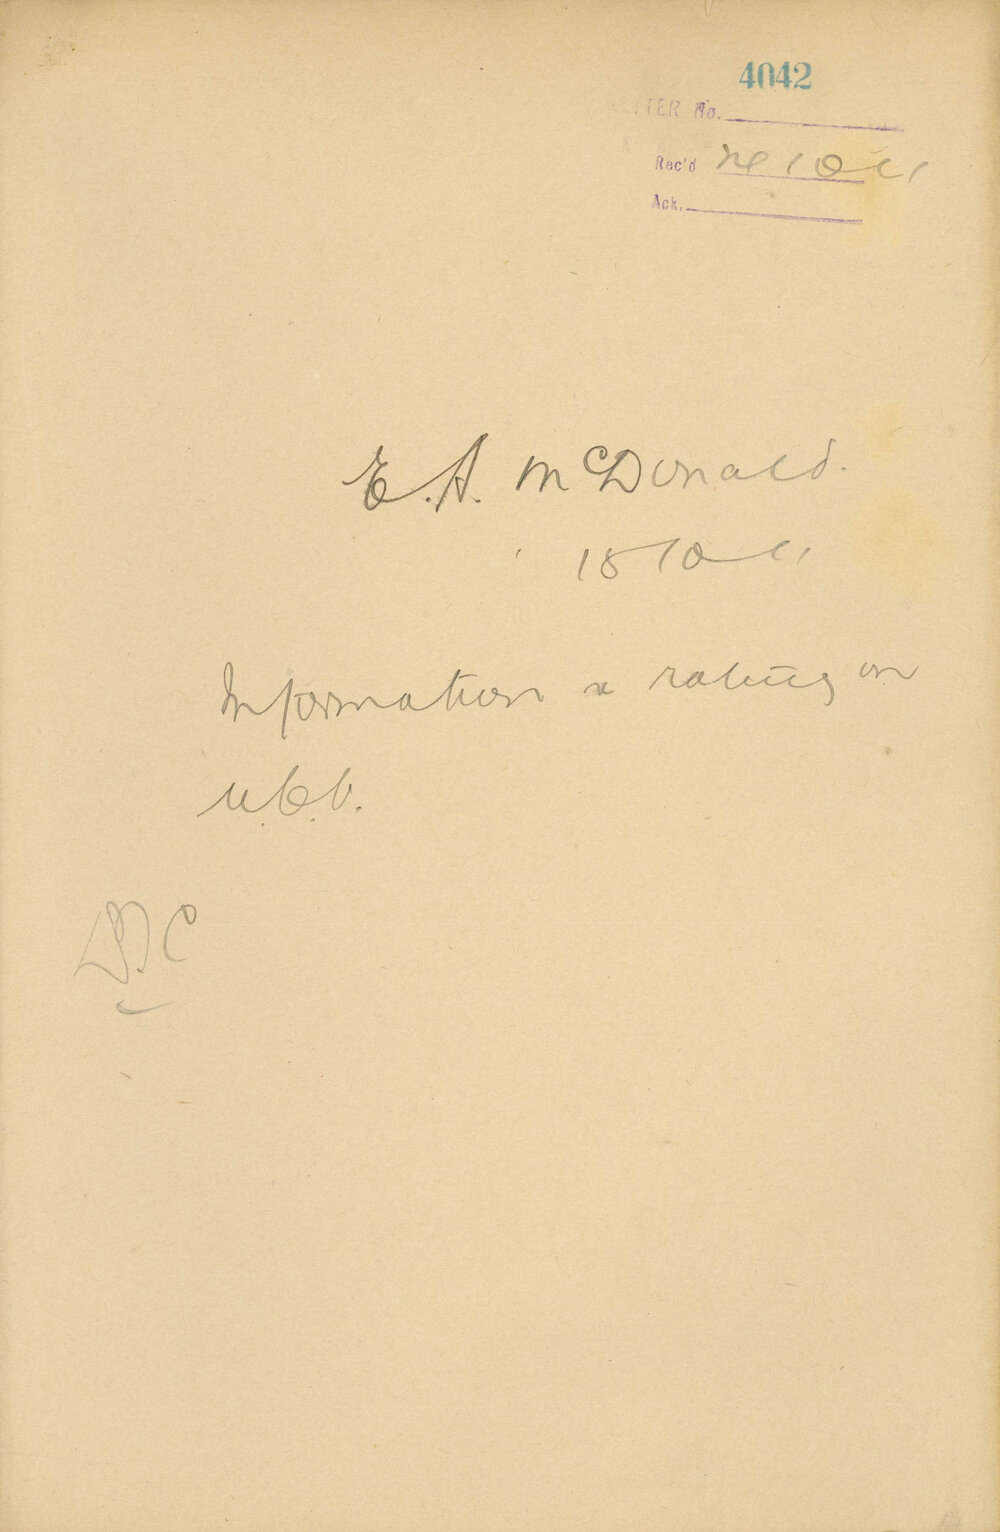 4042
TTER No.
Rec'd 10 11
Ack.
E. A. McDonald.
18 10 11
Information & rating on
D. C